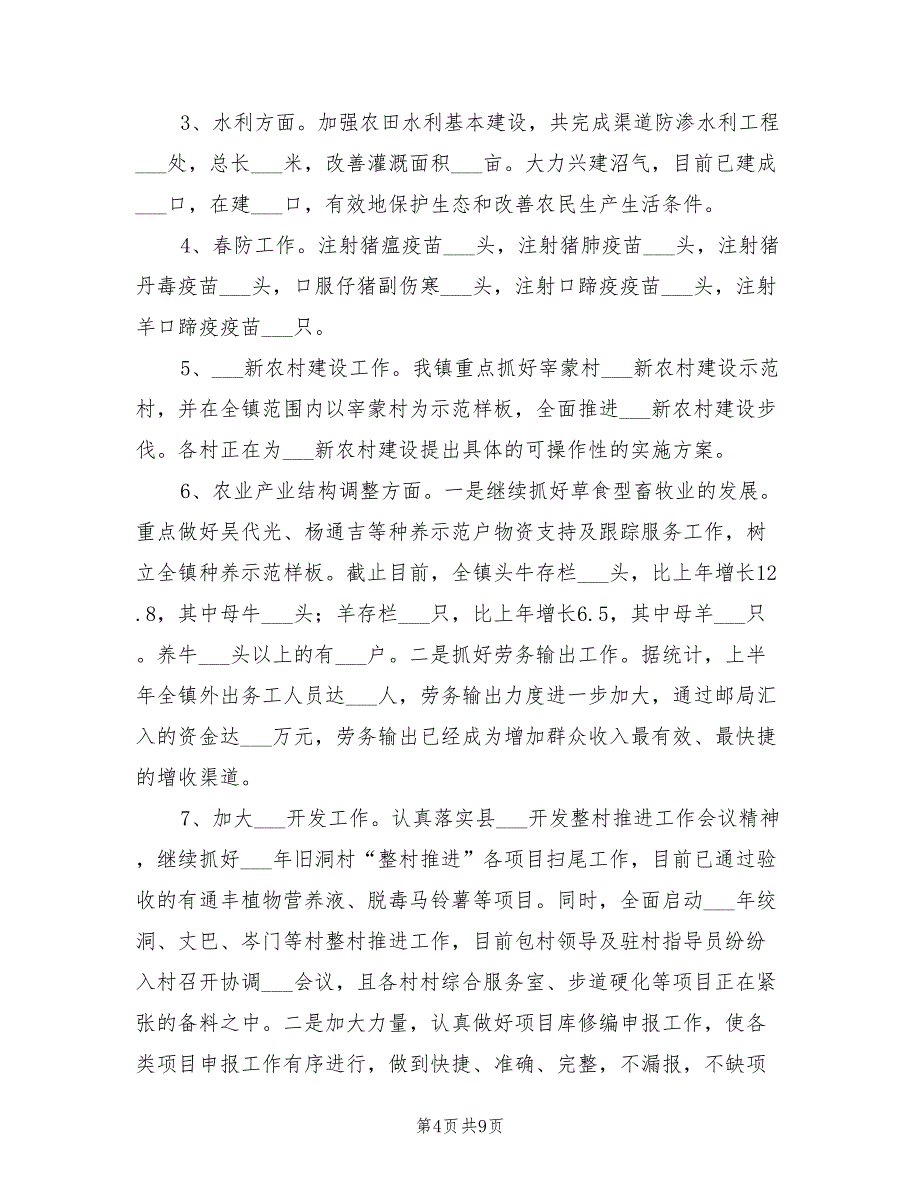 3、水利方面。加强农田水利基本建设，共完成渠道防渗水利工程
___处，总长___米，改善灌溉面积___亩。大力兴建沼气，目前已建成
___口，在建___口，有效地保护生态和改善农民生产生活条件。
4、春防工作。注射猪瘟疫苗___头，注射猪肺疫苗___头，注射猪
丹毒疫苗___头，口服仔猪副伤寒___头，注射口蹄疫疫苗___头，注射
羊口蹄疫疫苗___只。
5、___新农村建设工作。我镇重点抓好宰蒙村___新农村建设示范
村，并在全镇范围内以宰蒙村为示范样板，全面推进___新农村建设步
伐。各村正在为___新农村建设提出具体的可操作性的实施方案。
6、农业产业结构调整方面。一是继续抓好草食型畜牧业的发展。
重点做好吴代光、杨通吉等种养示范户物资支持及跟踪服务工作，树
立全镇种养示范样板。截止目前，全镇头牛存栏___头，比上年增长12
.8，其中母牛___头；羊存栏___只，比上年增长6.5，其中母羊___只
。养牛___头以上的有___户。二是抓好劳务输出工作。据统计，上半
年全镇外出务工人员达___人，劳务输出力度进一步加大，通过邮局汇
入的资金达___万元，劳务输出已经成为增加群众收入最有效、最快捷
的增收渠道。
7、加大___开发工作。认真落实县___开发整村推进工作会议精神
，继续抓好___年旧洞村“整村推进”各项目扫尾工作，目前已通过验
收的有通丰植物营养液、脱毒马铃薯等项目。同时，全面启动___年绞
洞、丈巴、岑门等村整村推进工作，目前包村领导及驻村指导员纷纷
入村召开协调___会议，且各村村综合服务室、步道硬化等项目正在紧
张的备料之中。二是加大力量，认真做好项目库修编申报工作，使各
类项目申报工作有序进行，做到快捷、准确、完整，不漏报，不缺项
第4页共9页